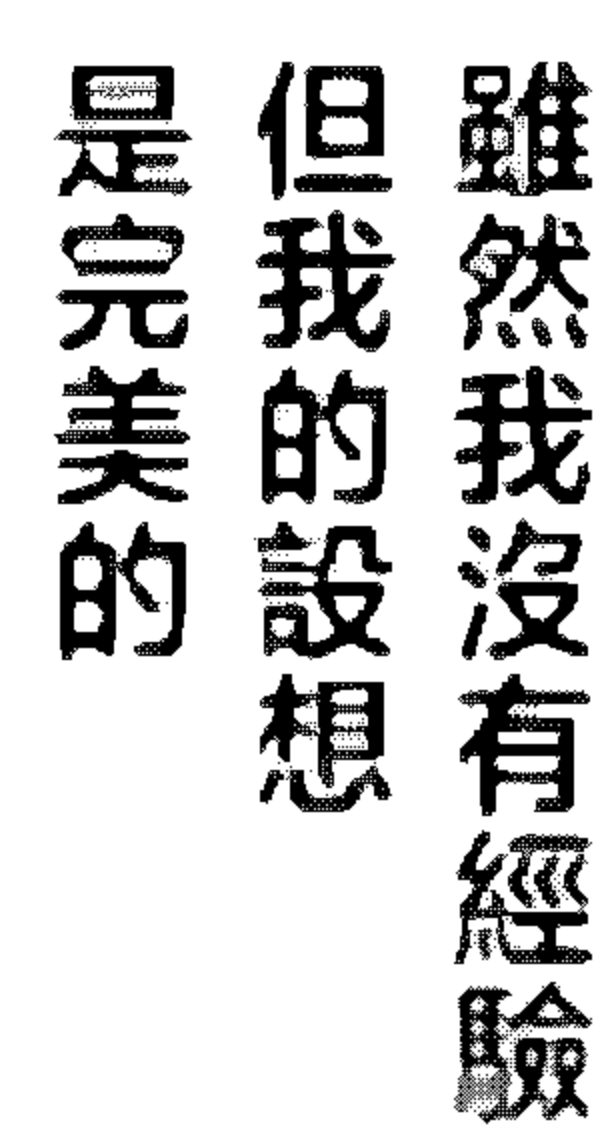 雖然我沒有經驗
但我的設想
是完美的